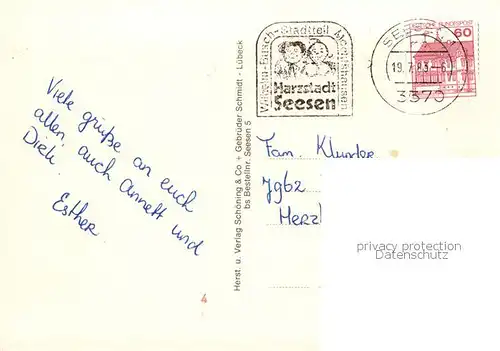 Viele grüße an euch
allen, auch Annett und
Dieli
Esther
Herst. u. Verlag Schöning & Co + Gebrüder Schmidt - Lübeck
bs Bestellnr. Seesen 5
Wilhelm-Busch-Stadtteil Mechtshausen
Harzstadt
Seesen
SEESEN 1
19.7.83-6
3370
BUNDESPOST
60
Fam.
Herzl
privacy protection
Datenschutz
4